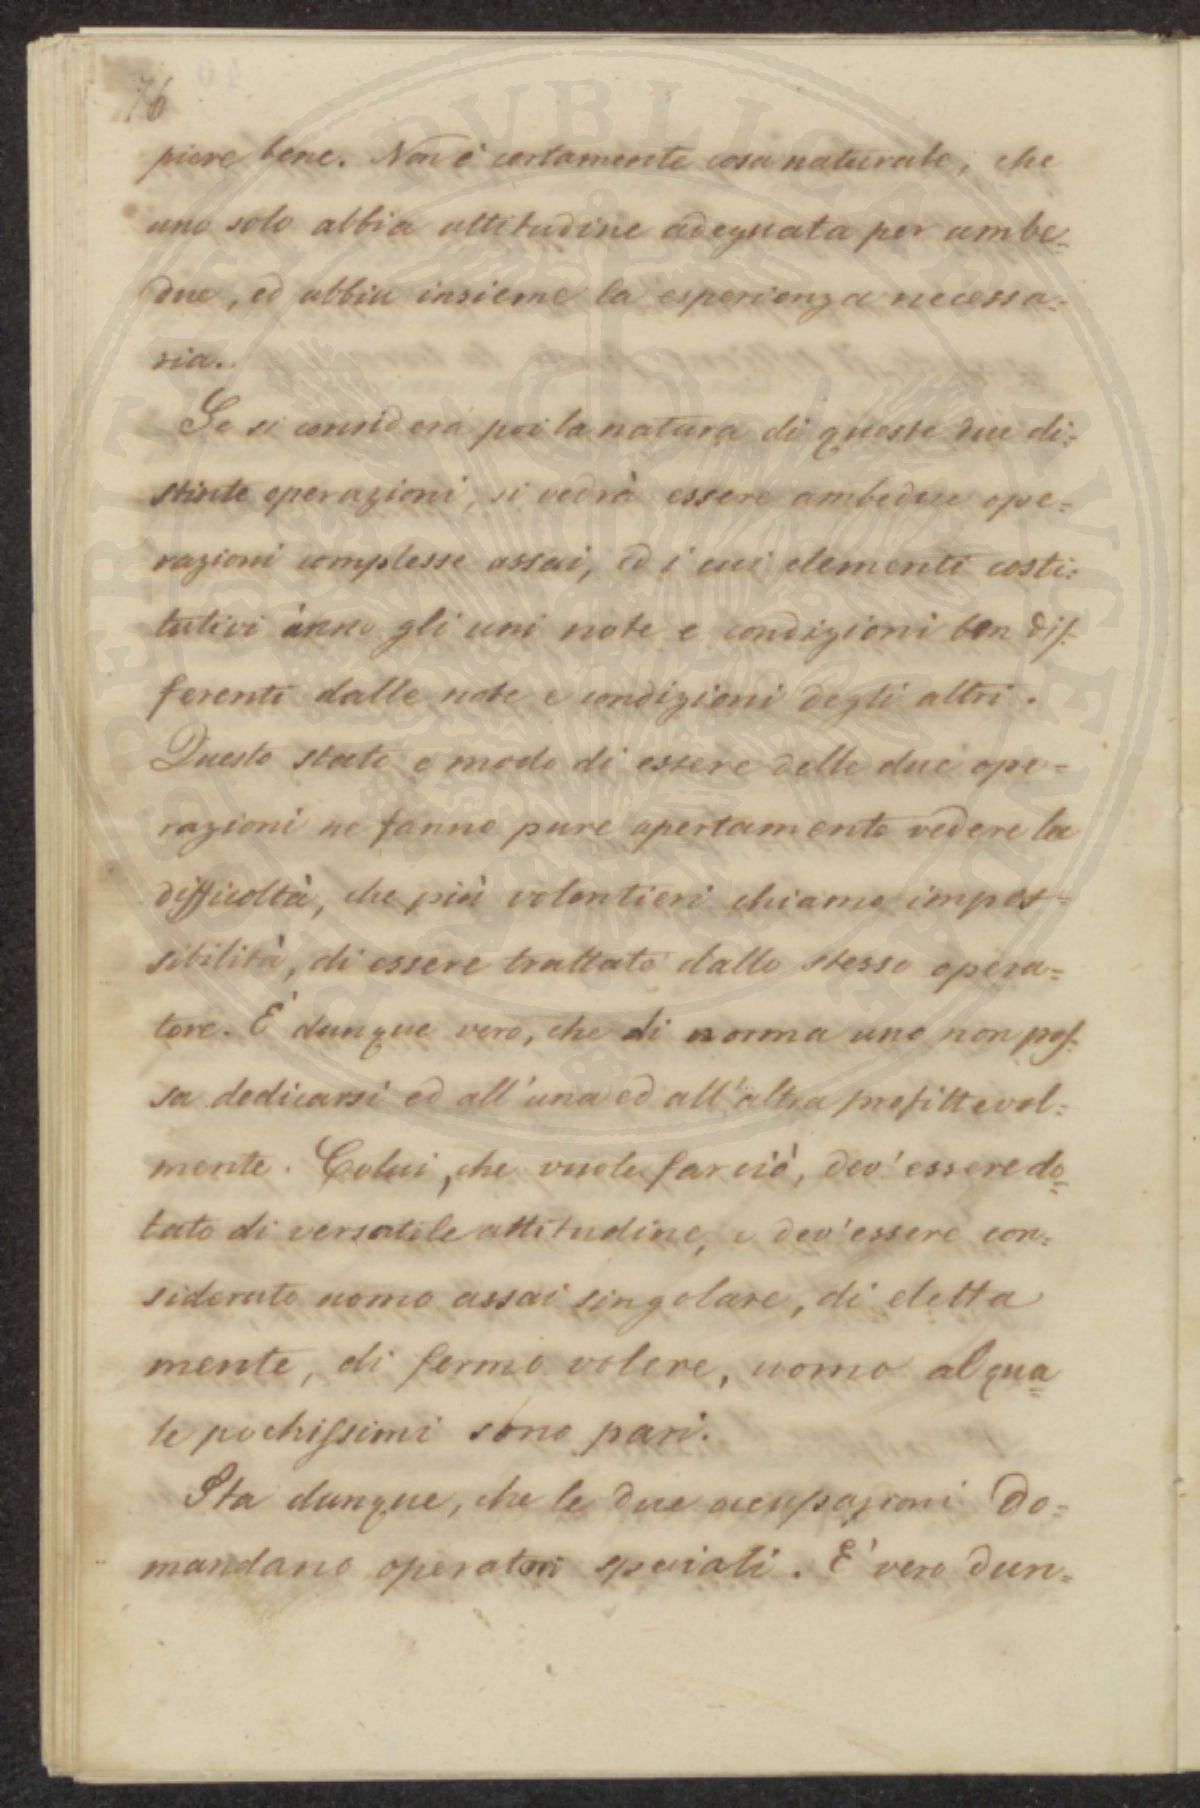 76
piere bene. Non è certamente cosa naturale, che
uno solo abbia attitudine adeguata per ambe=
due, ed abbia insieme la esperienza necessa=
ria.
Se si considera poi la natura di queste due di=
stinte operazioni, si vedrà essere ambedue ope=
razioni complesse assai, ed i cui elementi costi=
tutivi ànno gli uni note e condizioni ben dif=
ferenti dalle note e condizioni degli altri.
Questo stato e modo di essere delle due ope=
razioni ne fanno pure apertamente vedere la
difficoltà, che più volontieri chiamo impos=
sibilità, di essere trattate dallo stesso opera=
tore. È dunque vero, che di norma uno non pos=
sa dedicarsi ed all'una ed all'altra profittevol=
mente. Colui, che vuole far ciò, dev'essere do=
tato di versatile attitudine, e dev'essere con=
siderato uomo assai singolare, di eletta
mente, di fermo volere, uomo al qua=
le pochissimi sono pari.
Sta dunque, che le due occupazioni do=
mandano operatori speciali. È vero dun=